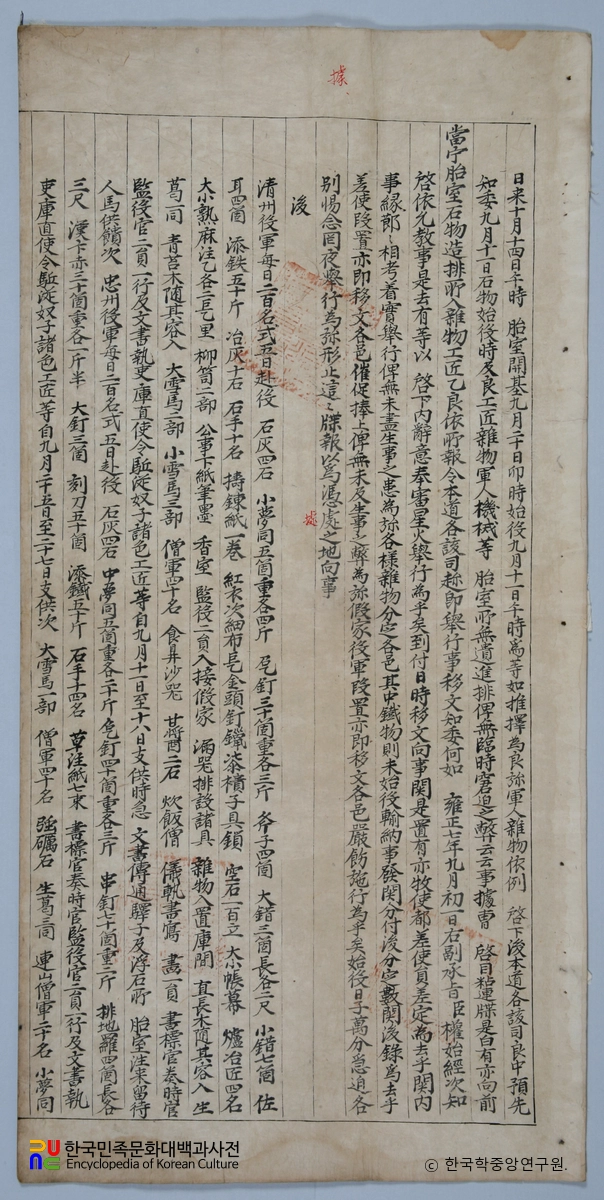 據
日来十月十四日午時 胎室開基九月二十日卯時始役九月十一日午時爲等如推擇爲良弥軍人雜物依例 啓下後本道各該司良中預先
知委九月十一日石物始役時及良工匠雜物軍人機械等 胎室所無遺進排俾無臨時窘迫之弊云云事據曹 啓目粘連牒是白有亦向前
當宁胎室石物造排所入雜物工匠乙良依所報令本道各該司趂卽舉行事移文知委何如 雍正七年九月初一日右副承旨臣權始經次知
啓依允教事是去有等以 啓下内辭意奉審星火舉行爲乎矣到付日時移文向事関是置有亦牧使都差使負差定爲去乎関内
事縁卽ミ相考着實舉行俾無未盡生事之患爲弥各様雜物分定各邑其中鐵物則未始役輸納事發関分付後分定數関後録爲去乎
差使段置亦卽移文各邑催促捧上俾無未及生事之弊爲弥假家役軍段置亦卽移文各邑嚴飭施行爲乎矣始役日子萬分急迫各
別惕念罔夜舉行爲弥形止這ミ牒報以爲憑處之地向事
據
後
清州役軍每日二百名式五日赴役 石灰四石 小夢同五箇重各四斤 
耳四箇 添鉄五十斤 冶灰十石 石手十名 擣鍊紙一卷 紅衣次細布 空石一百立 大小帳幕 爐冶匠四名
大小熟麻注乙各三巨里 柳笥二部 公事下紙筆墨 香室 監役二負入接假家 漏器排設諸具 雜物入置庫間 直長木随其容入 生
葛一同 青苔木随其容入 大雪馬二部 小雪馬三部 僧軍四十名 食鼎沙器 甘醬二石 炊飯僧 儀軌書寫 畵一負 書標官奏時官
監役官二負一行及文書執吏庫直使令駈從奴子諸色工匠等自九月十一日至十八日支供時急 文書傳通驛子及浮石所 胎室往来留待
人馬供饋次 忠州役軍每日二百名式五日赴役 石灰四石 中夢同五箇重各二十斤 串釘七十箇重二斤 排地羅四箇長各
三尺 大釘三箇 刻刀五十箇 添鐵五十斤 石手十四名 草注紙七束 書標官奏時官監役官二負一行及文書執
吏庫直使令駈從奴子諸色工匠等自九月二十五日至二十七日支供次 大雪馬一部 僧軍四十名 强礪石 生葛三同 連山僧軍二十名 小夢同
한국민족문화대백과사전
Encyclopedia of Korean Culture
© 한국학중앙연구원.